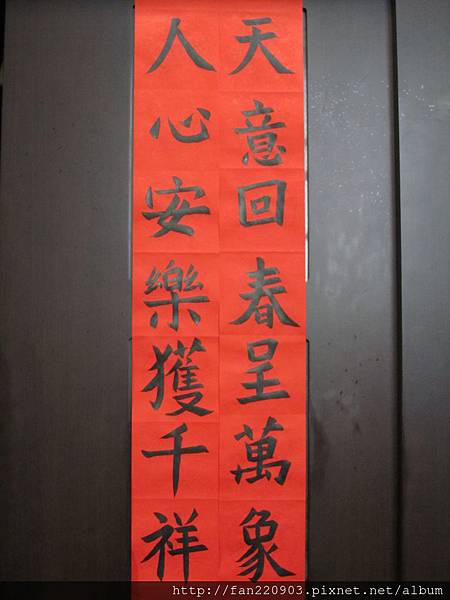 天意回春呈萬象
人心安樂獲千祥
http://fan220903.pixnet.net/album